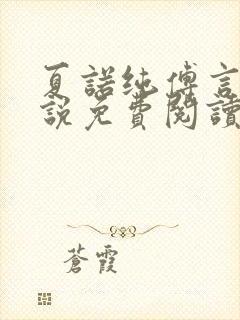 夏諾純傅言
說免費閱讀
蒼霞